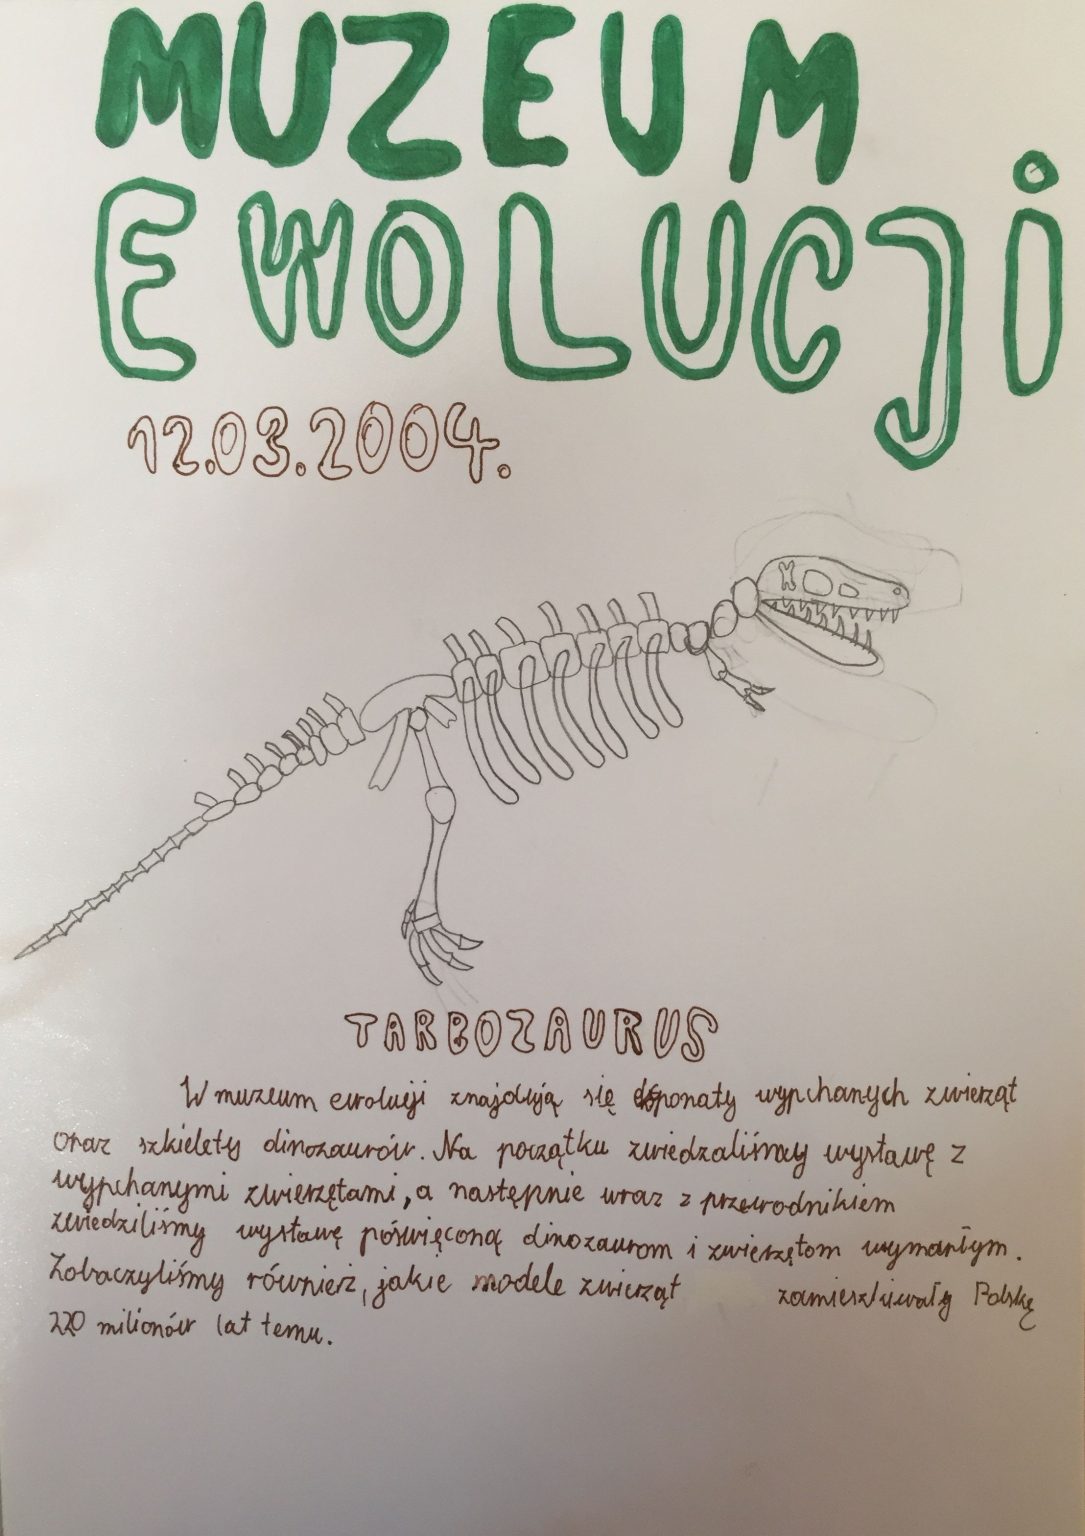 MUZEUM
EWOLUCJI
12.03.2004.
TARBOZAURUS
W muzeum ewolucji znajdują się eksponaty wypchanych zwierząt
oraz szkielety dinozaurów. Na początku zwiedzaliśmy wystawę z
wypchanymi zwierzętami, a następnie wraz z przewodnikiem
zwiedziliśmy wystawę poświęconą dinozaurom i zwierzętom wymarłym.
Zobaczyliśmy również, jakie modele zwierząt zamieszkiwały Polskę
220 milionów lat temu.